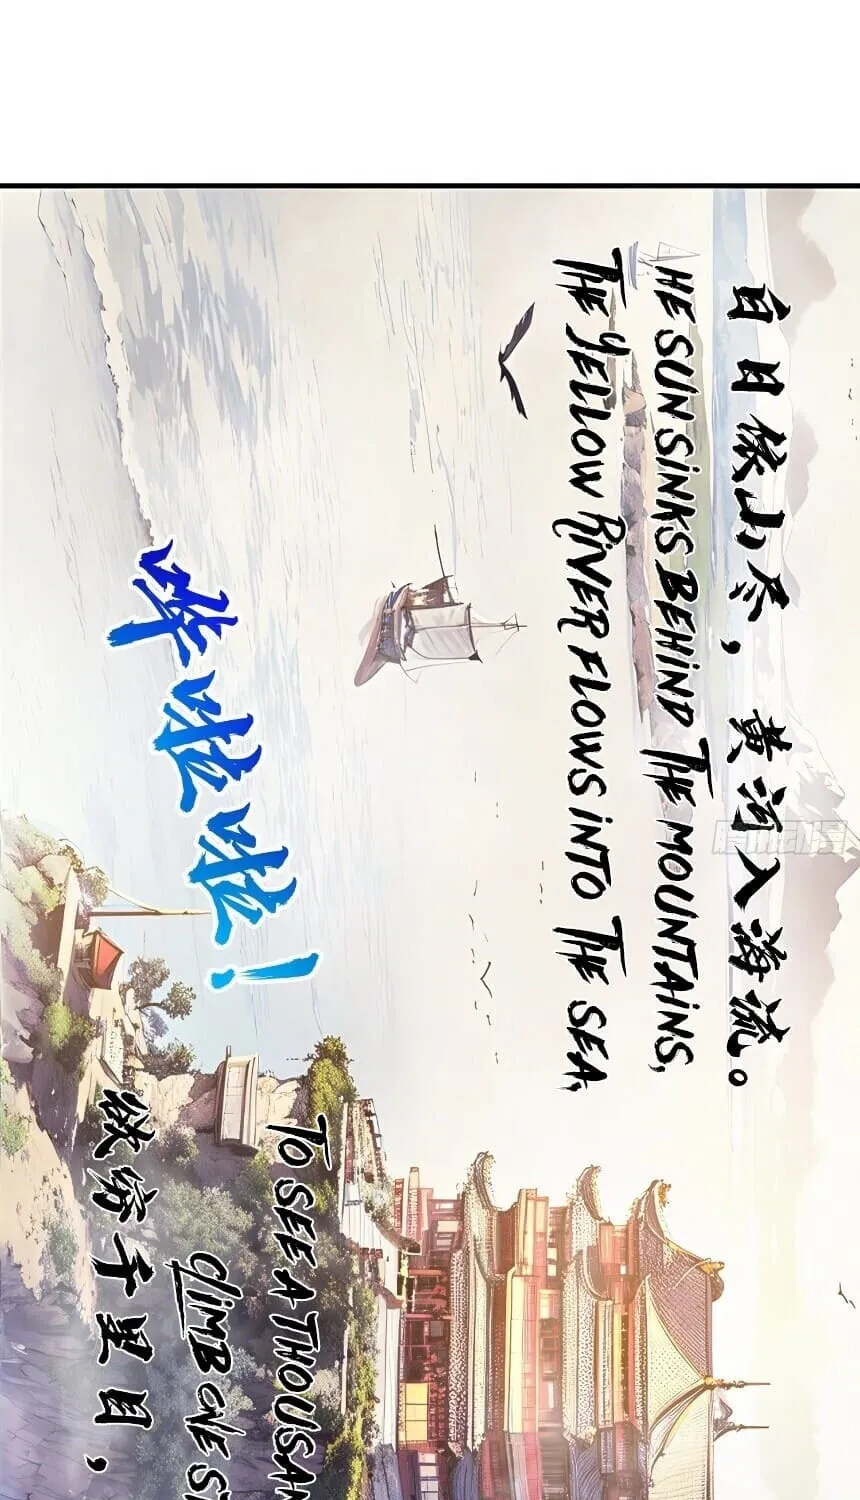 白日依山尽，黄河入海流。
HE SUN SINKS BEHIND THE MOUNTAINS,
THE YELLOW RIVER FLOWS INTO THE SEA,
哗啦啦！
TO SEE A THOUSAN
CLIMB ONE S
欲穷千里目，